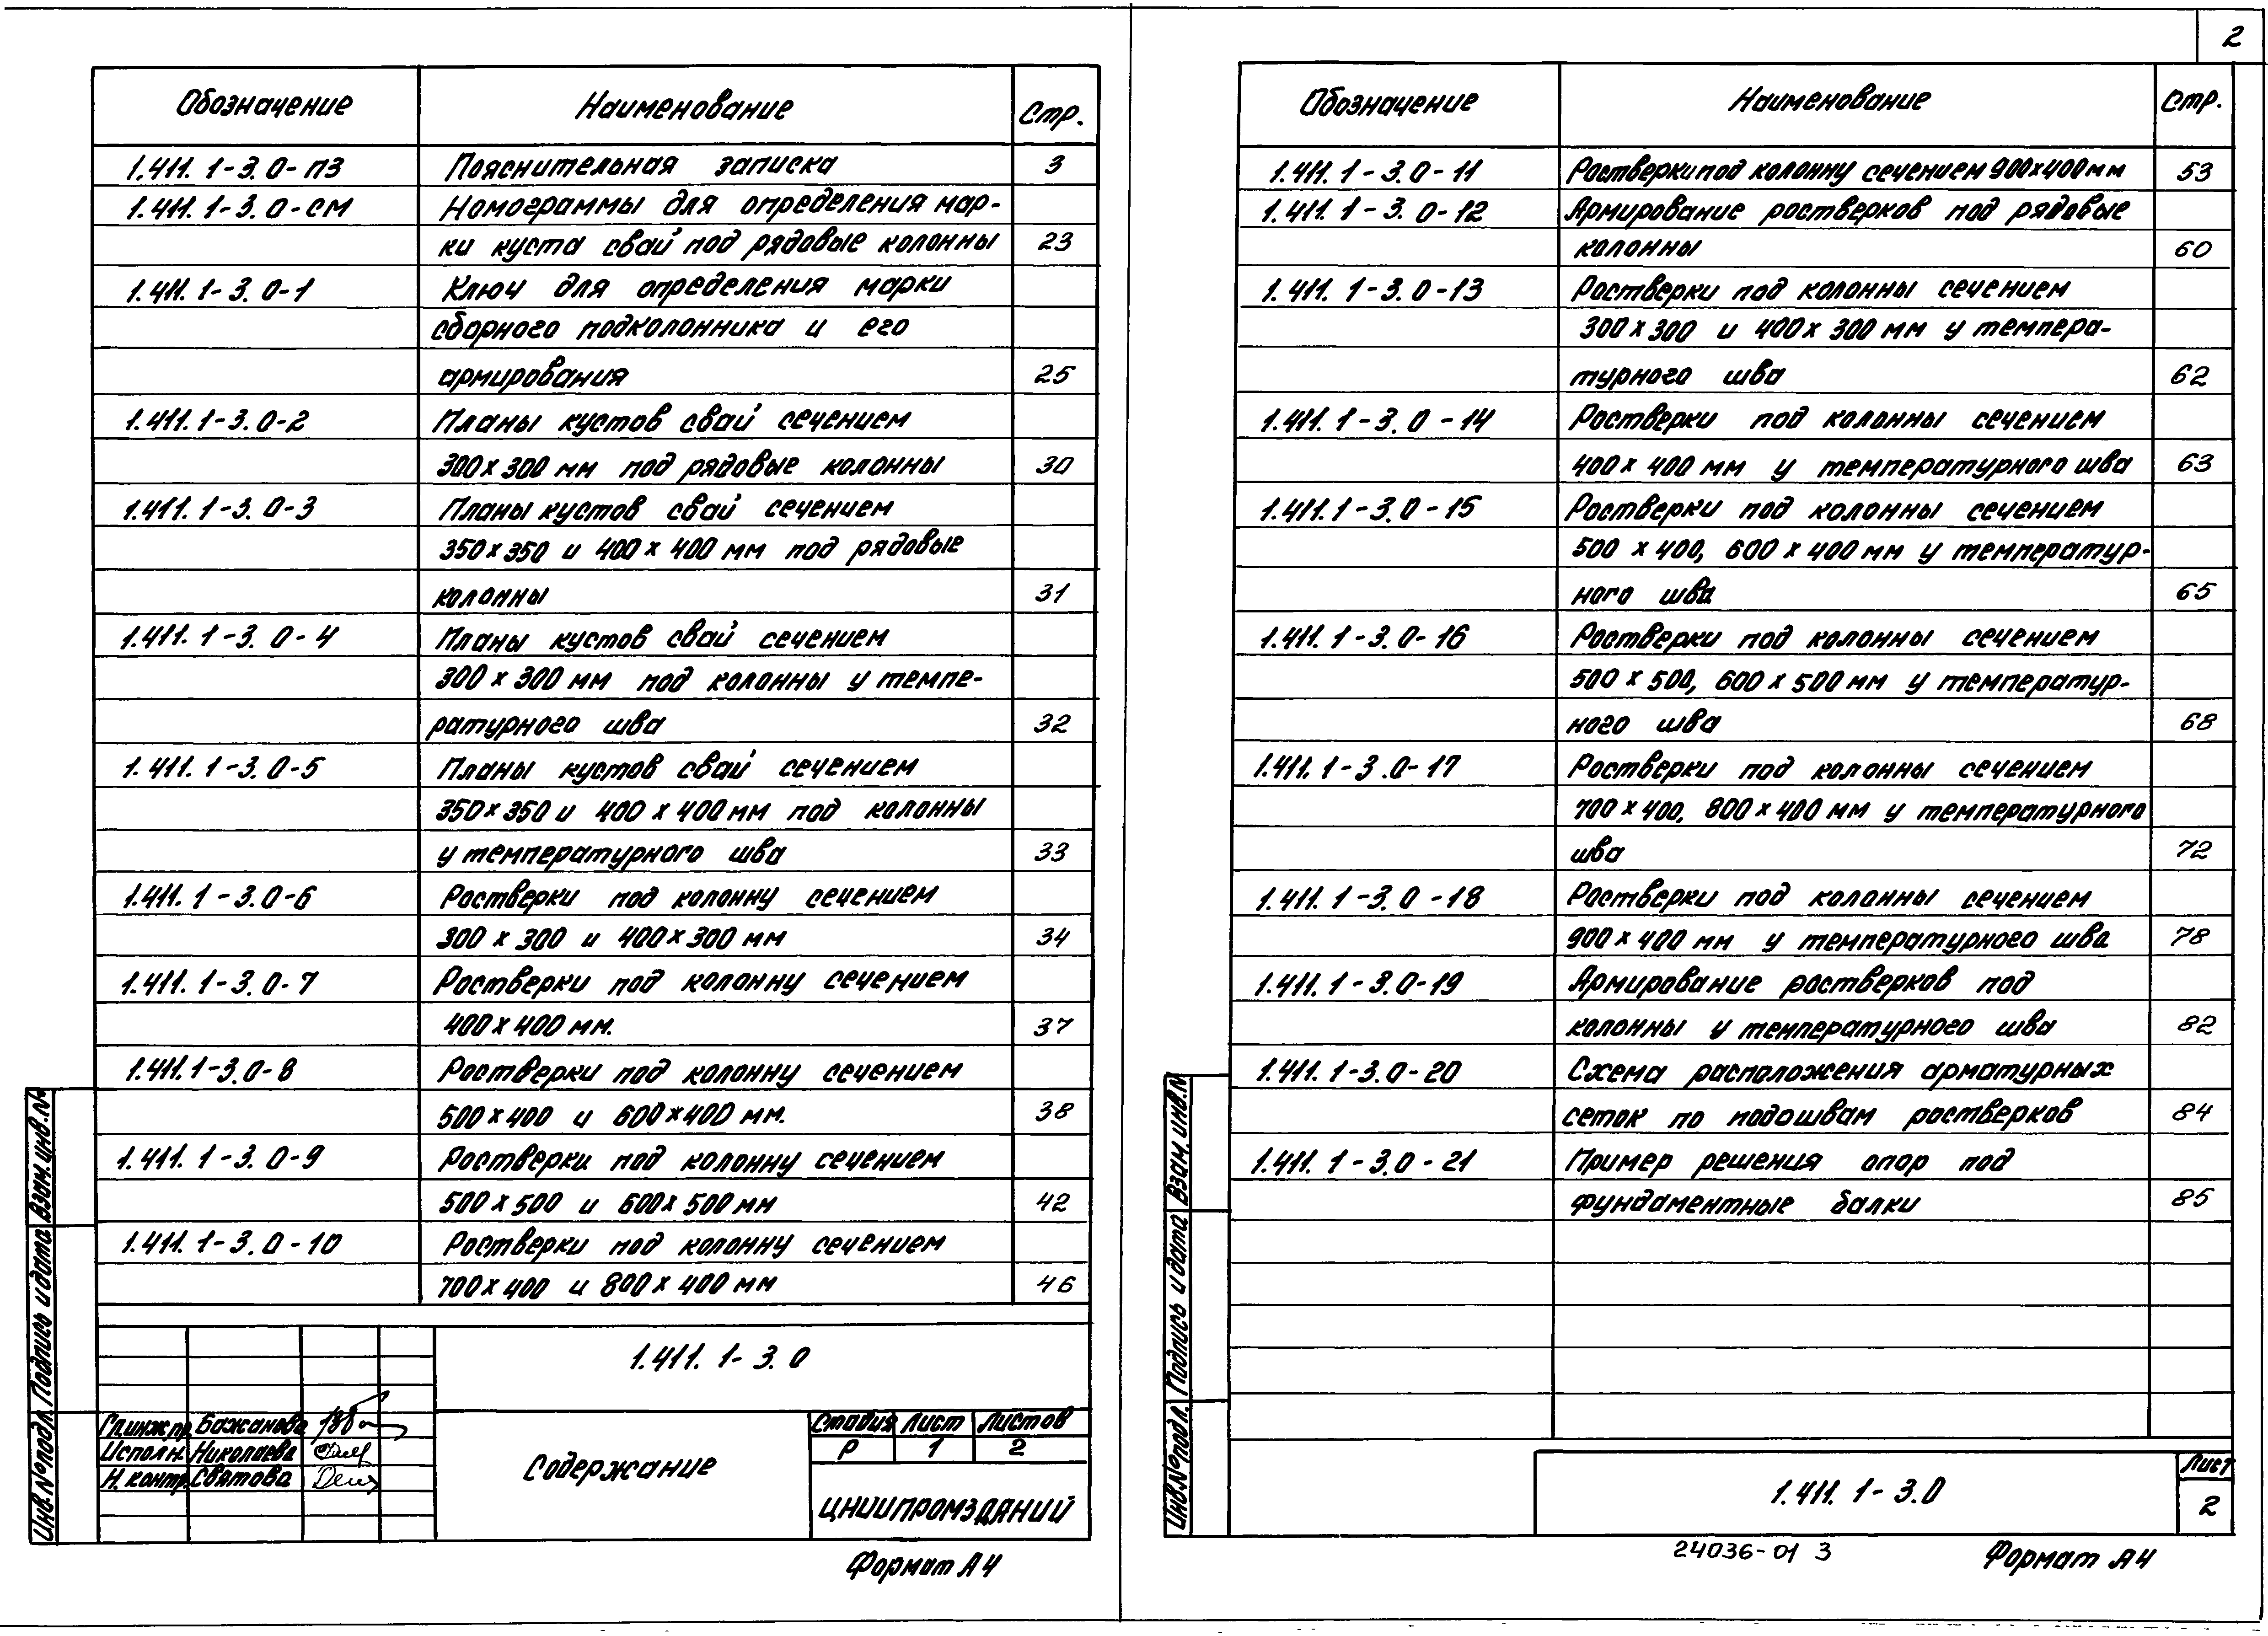 2
Обозначение Наименование Стр.
1.411.1-3.0-ПЗ Пояснительная записка 3
1.411.1-3.0-СМ Номограммы для определения мар-
ки куста свай под рядовые колонны 23
1.411.1-3.0-1 Ключ для определения марки
сборного подколонника и его
армирования 25
1.411.1-3.0-2 Планы кустов свай сечением
300х300 мм под рядовые колонны 30
1.411.1-3.0-3 Планы кустов свай сечением
350х350 и 400х400 мм под рядовые
колонны 31
1.411.1-3.0-4 Планы кустов свай сечением
300х300 мм под колонны у темпе-
ратурного шва 32
1.411.1-3.0-5 Планы кустов свай сечением
350х350 и 400х400 мм под колонны
у температурного шва 33
1.411.1-3.0-6 Ростверки под колонну сечением
300х300 и 400х300 мм 34
1.411.1-3.0-7 Ростверки под колонну сечением
400х400 мм. 37
1.411.1-3.0-8 Ростверки под колонну сечением
500х400 и 600х400 мм. 38
1.411.1-3.0-9 Ростверки под колонну сечением
500х500 и 600х500 мм 42
1.411.1-3.0-10 Ростверки под колонну сечением
700х400 и 800х400 мм 46
1.411.1-3.0
Гл.инж.пр. Бажанова
Исполн. Николаева
Н. контр. Святова
Содержание
Стадия Лист Листов
Р 1 2
ЦНИИПРОМЗДАНИЙ
Инв.№подл. Подпись и дата Взам.инв.№
Формат А4
Обозначение Наименование Стр.
1.411.1-3.0-11 Ростверки под колонну сечением 900х400мм 53
1.411.1-3.0-12 Армирование ростверков под рядовые
колонны 60
1.411.1-3.0-13 Ростверки под колонны сечением
300х300 и 400х300 мм у темпера-
турного шва 62
1.411.1-3.0-14 Ростверки под колонны сечением
400х400 мм у температурного шва 63
1.411.1-3.0-15 Ростверки под колонны сечением
500х400, 600х400 мм у температур-
ного шва 65
1.411.1-3.0-16 Ростверки под колонны сечением
500х500, 600х500 мм у температур-
ного шва 68
1.411.1-3.0-17 Ростверки под колонны сечением
700х400, 800х400 мм у температурного
шва 72
1.411.1-3.0-18 Ростверки под колонны сечением
900х400 мм у температурного шва 78
1.411.1-3.0-19 Армирование ростверков под
колонны у температурного шва 82
1.411.1-3.0-20 Схема расположения арматурных
сеток по подошвам ростверков 84
1.411.1-3.0-21 Пример решения опор под
фундаментные балки 85
1.411.1-3.0
Лист
2
Инв.№подл. Подпись и дата Взам.инв.№
24036-01 3
Формат А4